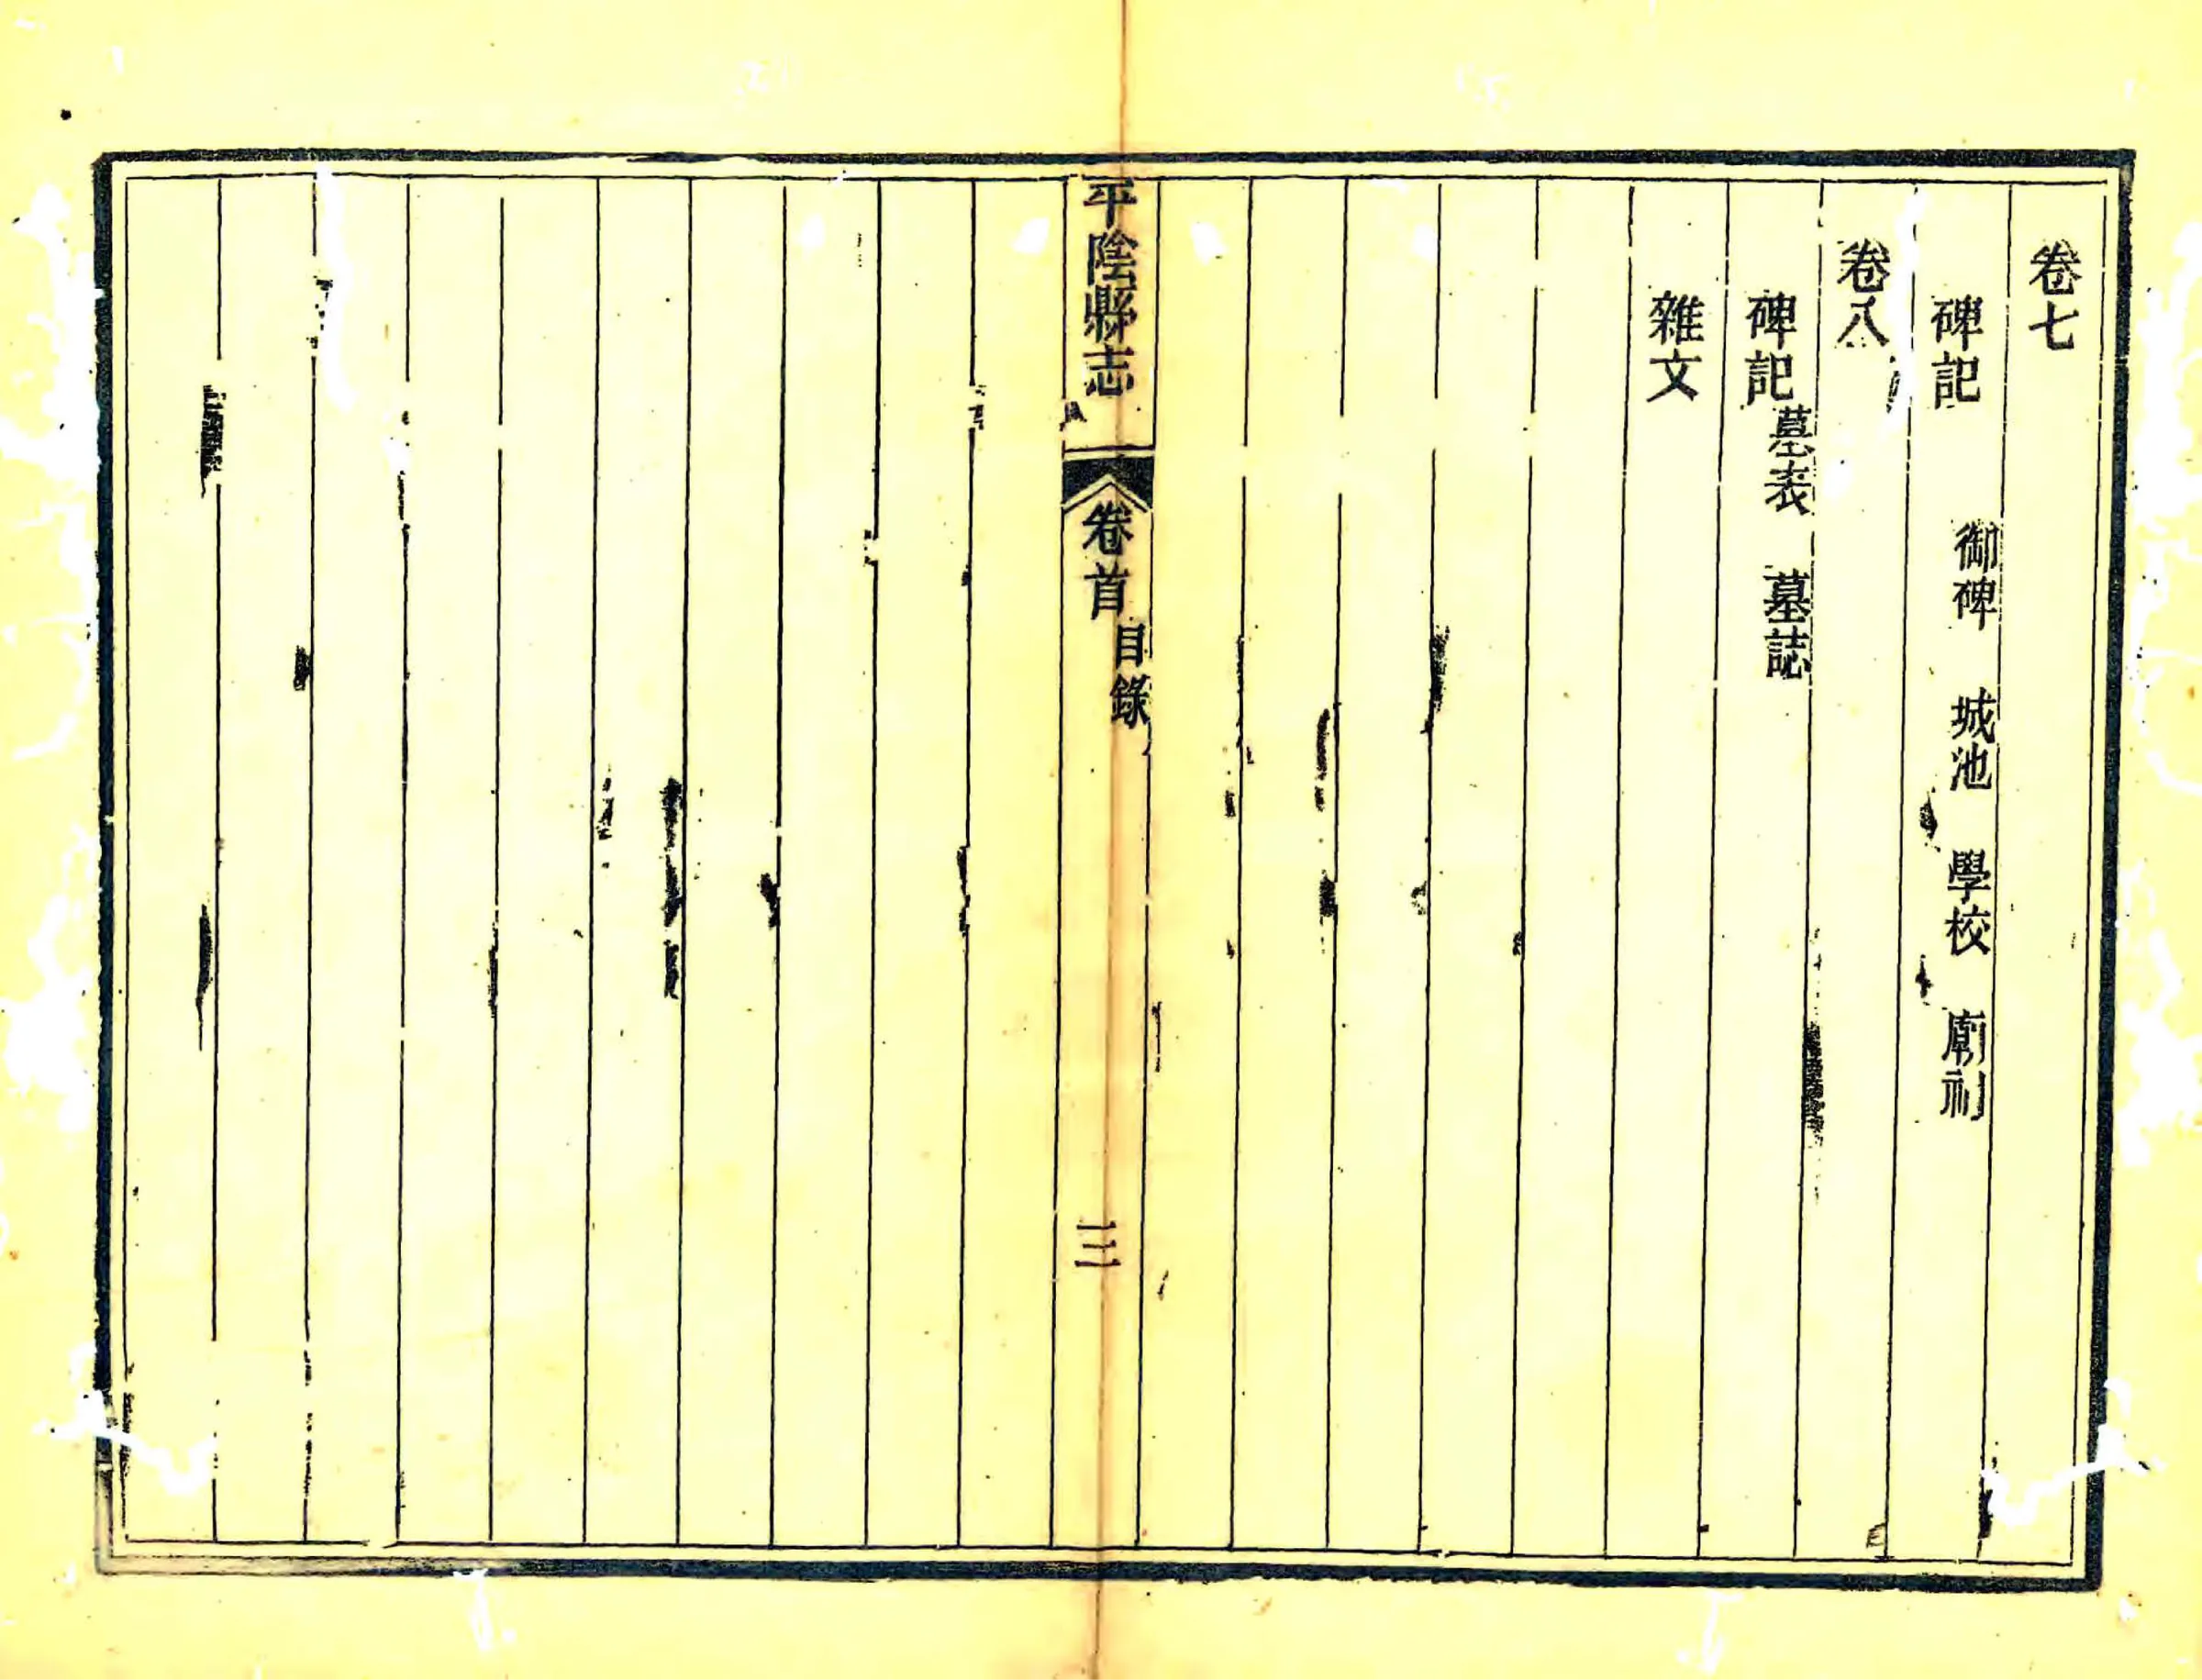 卷七
碑記 御碑 城池 學校 廟祠
卷八
碑記 墓表 墓誌
雜文
平陰縣志 卷首 目錄 三